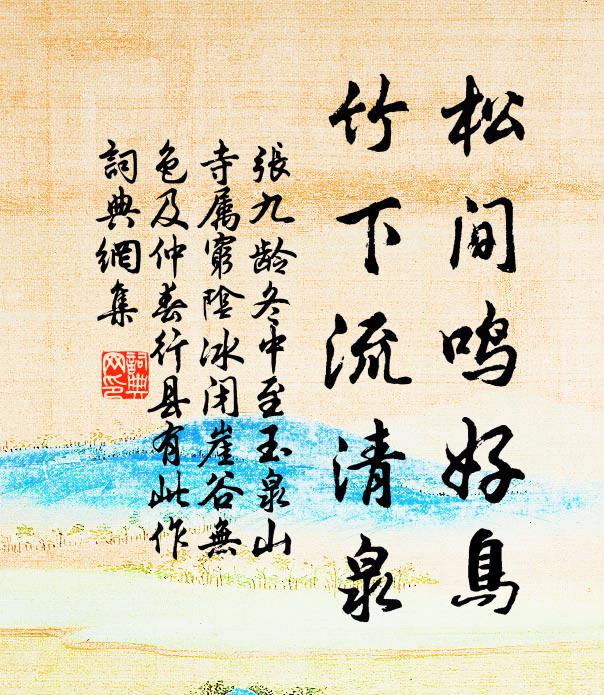 松间鸣好鳥
竹下流清泉
張九龄冬中至玉泉山
寺属窮陰冰闭崖谷無
色及仲春行县有此作
詞典網集
詞典网印